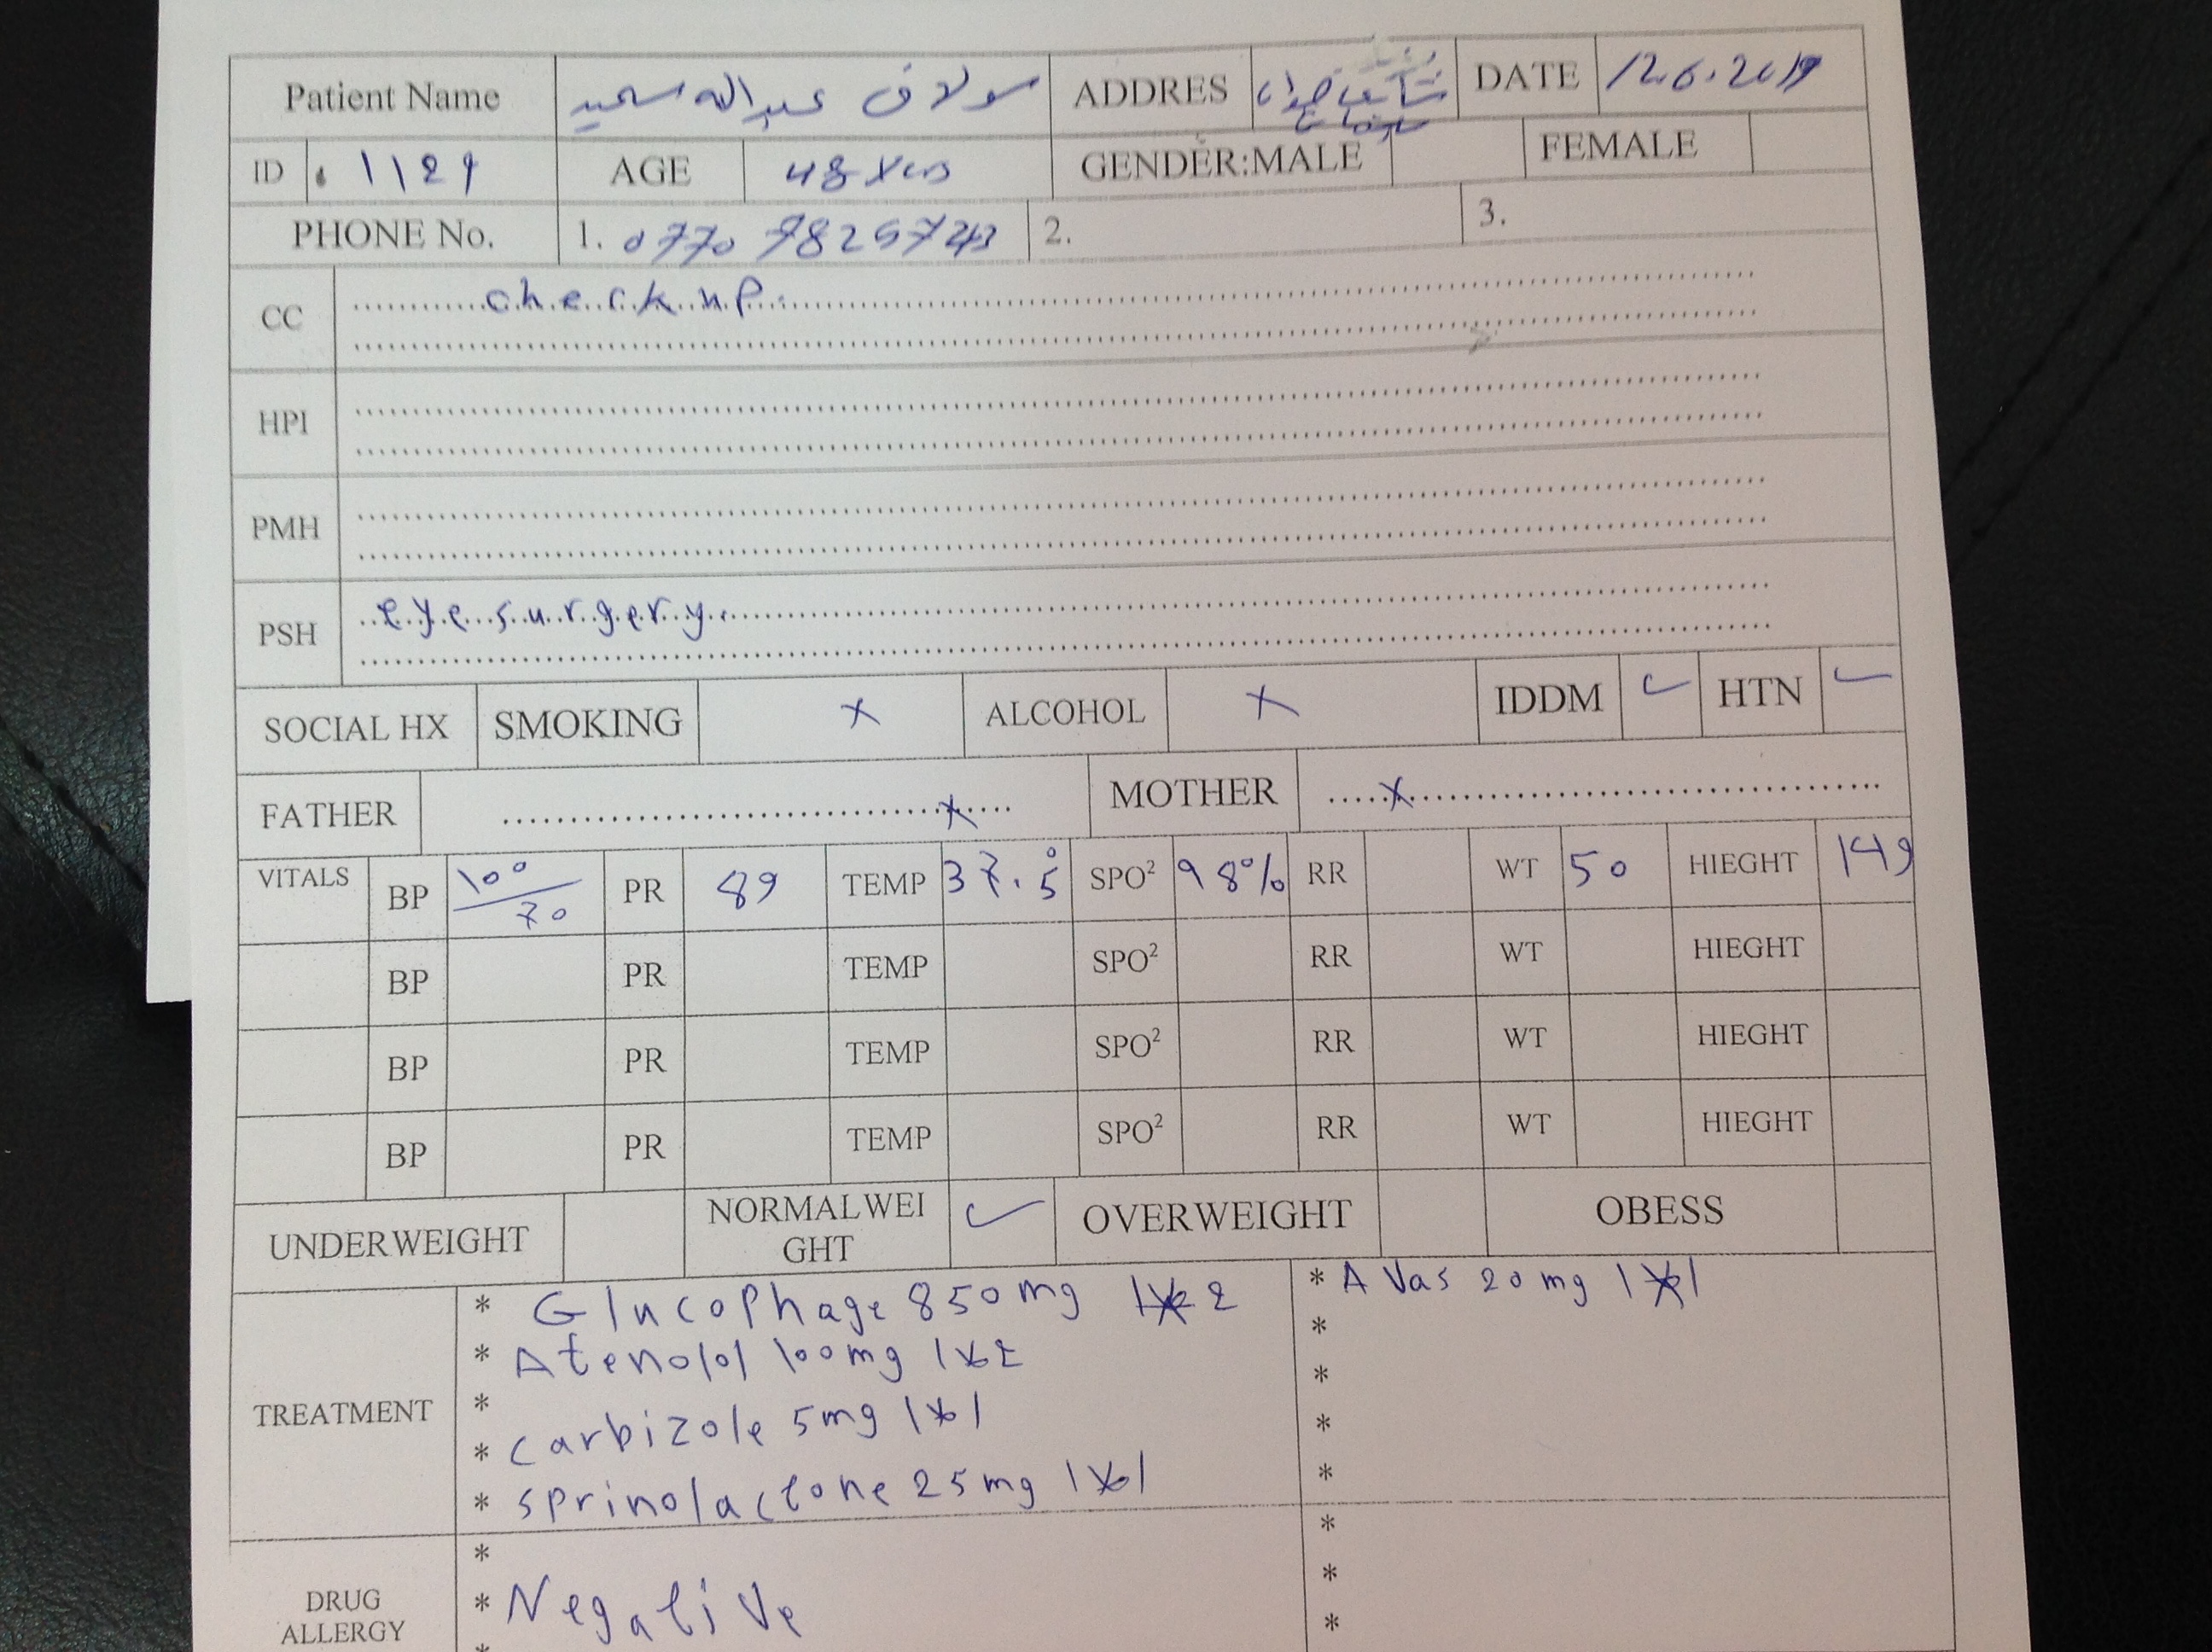 Patient Name سولاف عبدالله سعيد ADDRES DATE 12.6.2019
ID 1129 AGE 48 Yrs GENDER:MALE FEMALE
PHONE No. 1. 0770 7825743 2. 3.
CC check up
HPI
PMH
PSH eye surgery
SOCIAL HX SMOKING x ALCOHOL x IDDM ✓ HTN ✓
FATHER x MOTHER x
VITALS BP 100/70 PR 89 TEMP 37.5° SPO² 98% RR WT 50 HIEGHT 149
BP PR TEMP SPO² RR WT HIEGHT
BP PR TEMP SPO² RR WT HIEGHT
BP PR TEMP SPO² RR WT HIEGHT
UNDERWEIGHT NORMALWEI
GHT ✓ OVERWEIGHT OBESS
TREATMENT
* Glucophage 850mg 1x2
* Atenolol 100mg 1x2
*
* Carbizole 5mg 1x1
* Sprinolactone 25mg 1x1
* A Vas 20mg 1x1
*
*
*
*
DRUG
ALLERGY
*
* Negative
*
*
*
*